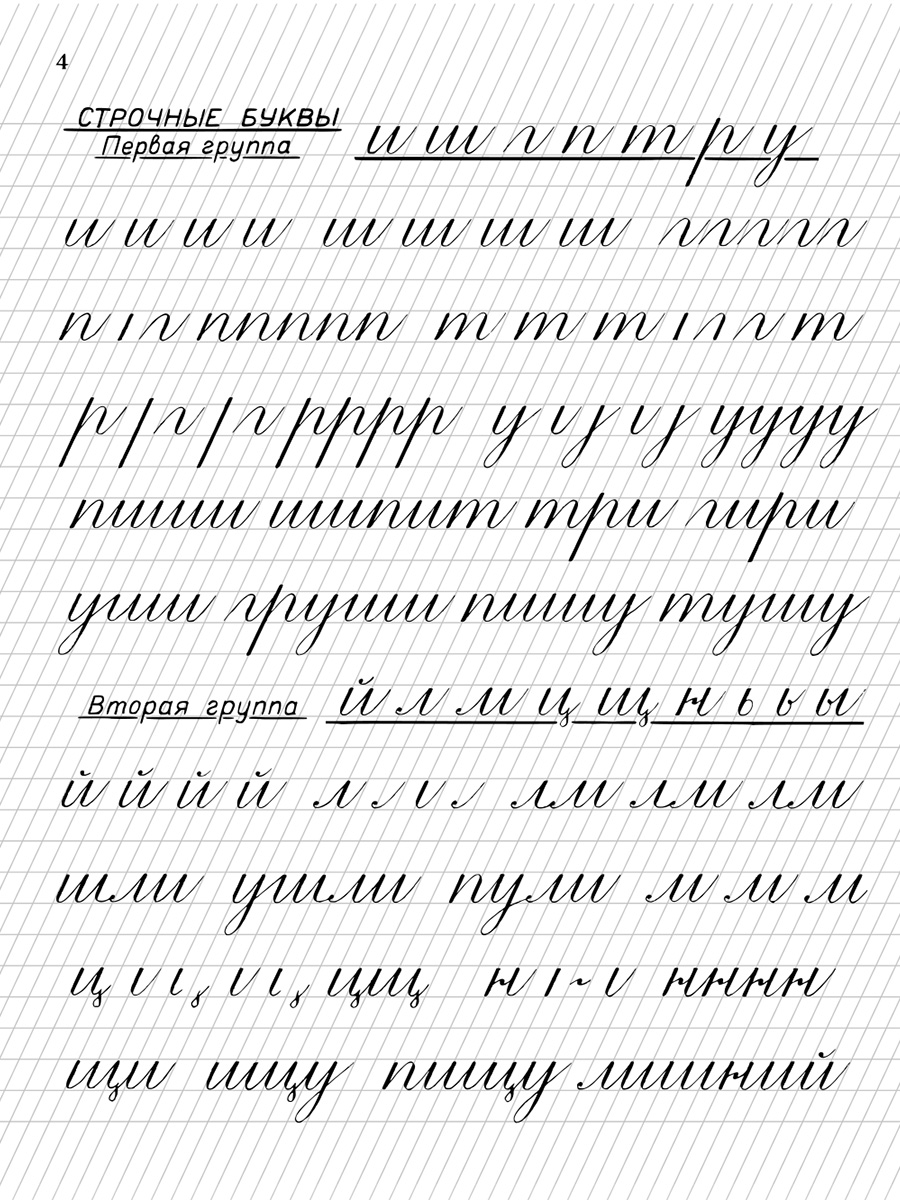 4
СТРОЧНЫЕ БУКВЫ
Первая группа
и ш г п т р у
и и и и ш ш ш ш ггггг
п г ппппп т т т т
р г г рррр у уууу
пиши шипит три гири
уши груши пишу тушу
Вторая группа
й л м ц щ н ь ъ ы
й й й й л лм лм лм
шли ушли пули м м м
ц цц н нннн
щи ищу пищу лишний